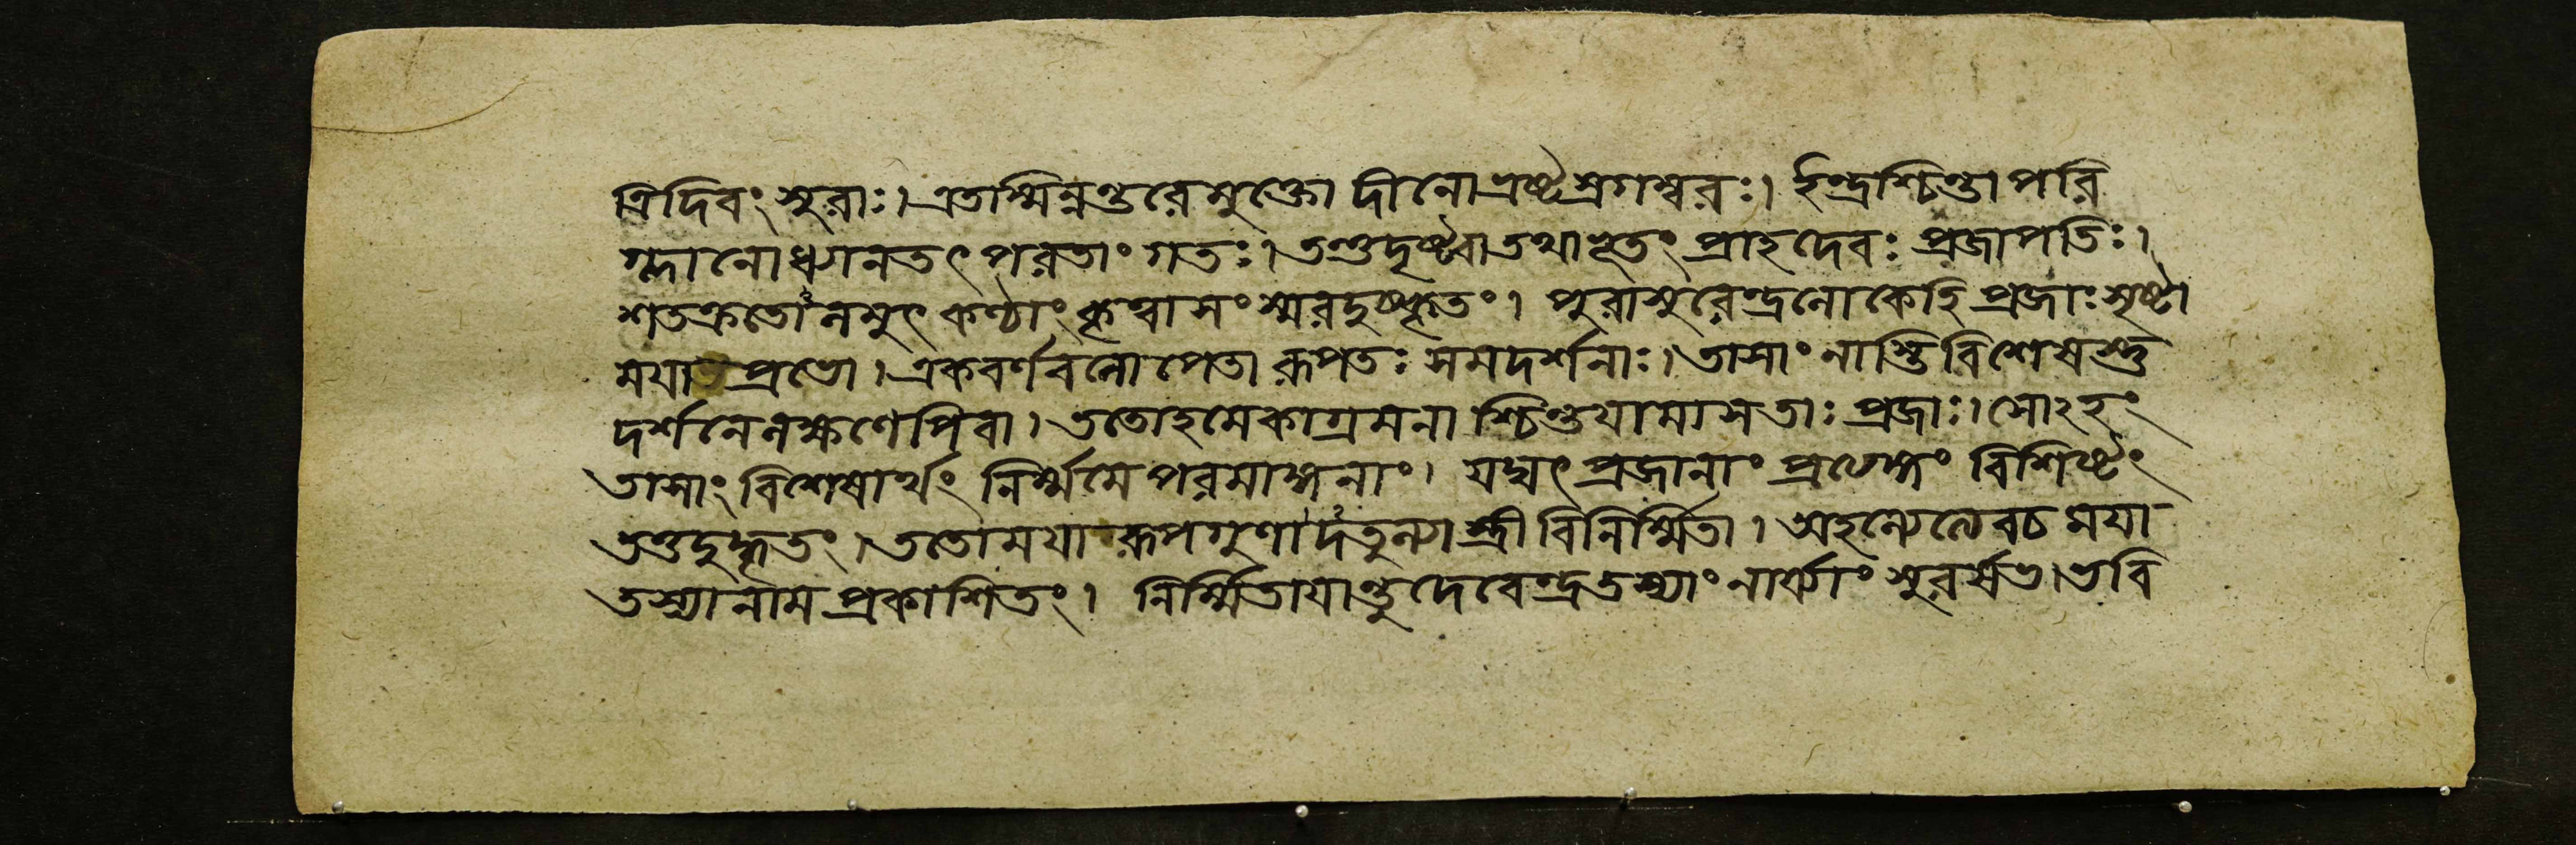 ত্রিদিবং সুরাঃ। এতস্মিন্নন্তরে মুক্তো দীনো ভ্রষ্টস্রগম্বরঃ। ইন্দ্রশ্চিন্তাপরি
গ্লানো ধ্যানতৎপরতাং গতঃ। তন্তু দৃষ্ট্বা তথাভূতং প্রাহ দেবঃ প্রজাপতিঃ।
শতক্রতো নমুৎকণ্ঠাং কৃত্বা সংস্মর দুষ্কৃতং। পুরা সুরেন্দ্র লোকে হি প্রজাঃ সৃষ্টা
ময়া প্রভো। একবর্ণবলোপেতা রূপতঃ সমদর্শনাঃ। তাসাং নাস্তি বিশেষস্তু
দর্শনে লক্ষণেপি বা। ততোহমেকাগ্রমনাশ্চিন্তয়ামাস তাঃ প্রজাঃ। সোঽহং
তাসাং বিশেষার্থং নির্ম্মমে পরমাঙ্গনাং। যদ্যৎ প্রজানাং প্রত্যঙ্গং বিশিষ্টং
তত্তদুদ্ধৃতং। ততো ময়া রূপগুণাদতুল্যা স্ত্রী বিনির্ম্মিতা। অহল্যেত্যেব চ ময়া
তস্যা নাম প্রকাশিতং। নির্ম্মিতায়ান্তু দেবেন্দ্র তস্যাং নার্য্যাং সুরর্ষভ। ভবি